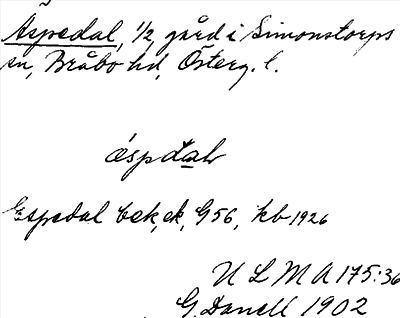 Äspedal, 1/2 gård i Simonstorps
sn, Bråbo hd, Österg. l.
äspdal
Espedal G56, kb 1926
U L M A 175:36
G. Danell 1902